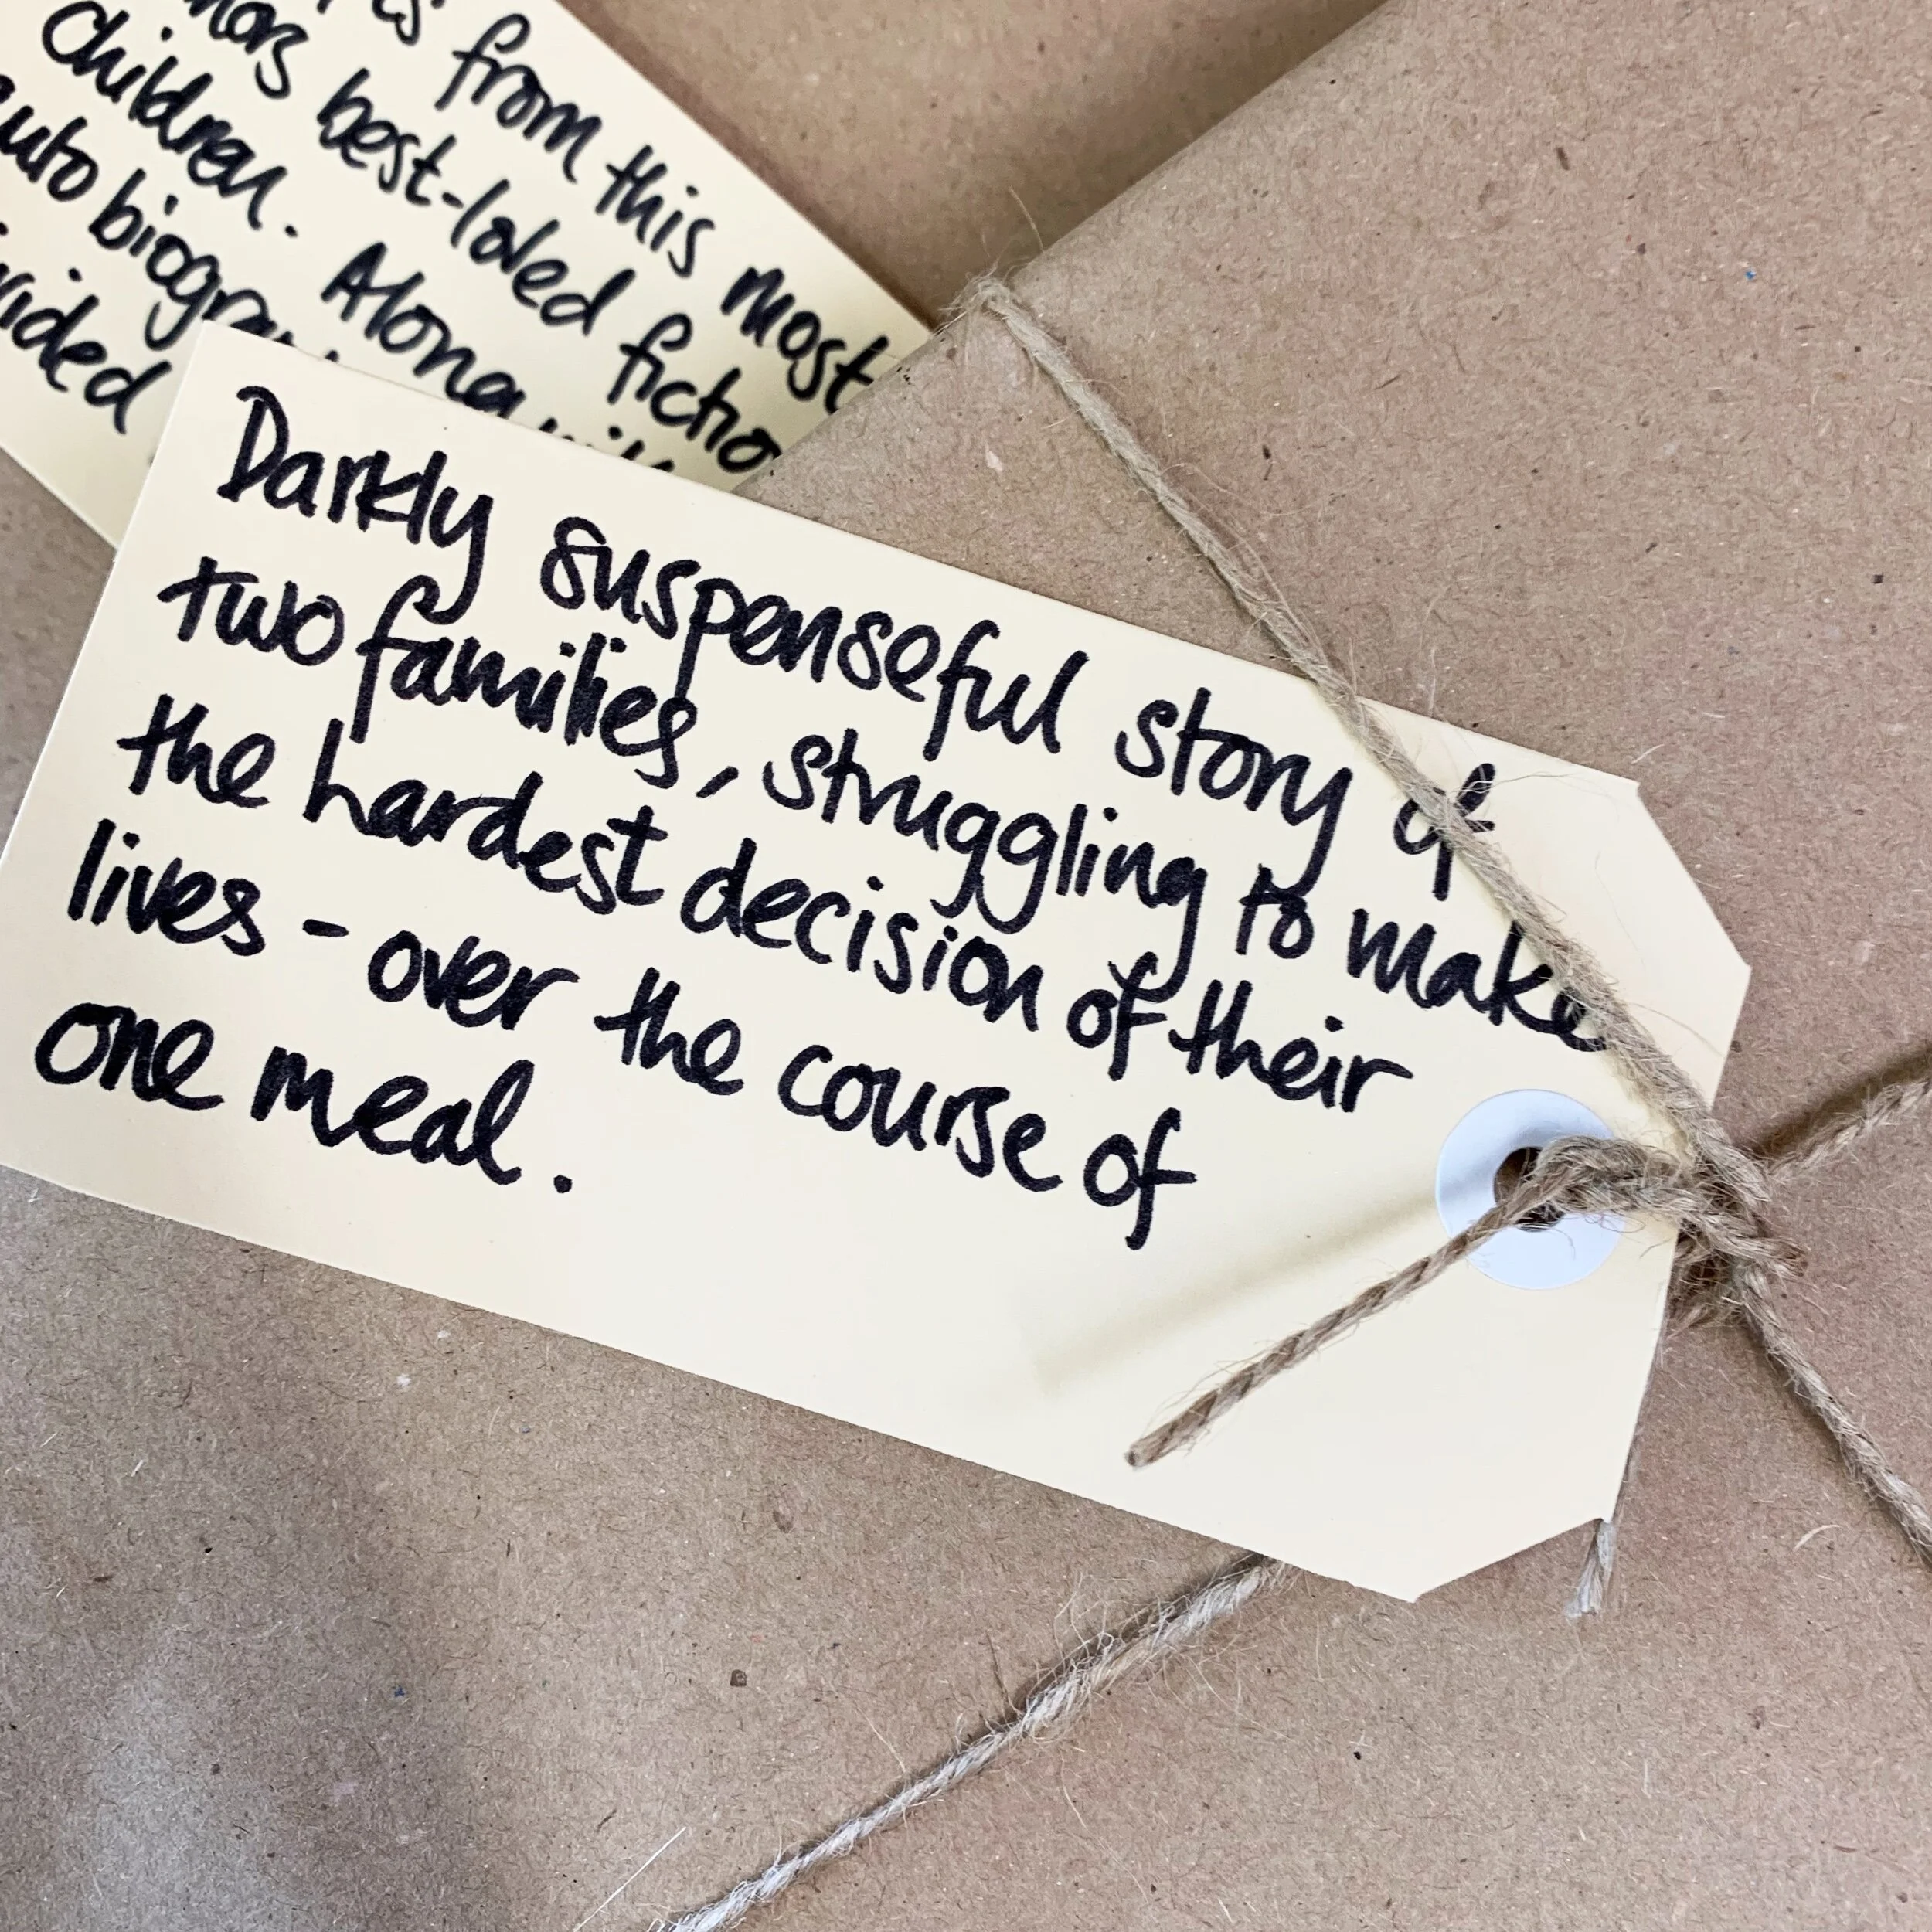 from this most
best-loved fictio
Children. Along
Darkly suspenseful story of
two families, struggling to make
the hardest decision of their
lives - over the course of
one meal.